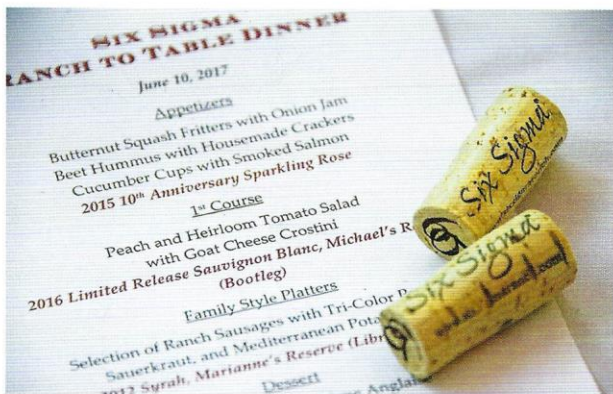 SIX SIGMA
RANCH TO TABLE DINNER
June 10, 2017
Appetizers
Butternut Squash Fritters with Onion Jam
Beet Hummus with Housemade Crackers
Cucumber Cups with Smoked Salmon
2015 10th Anniversary Sparkling Rose
1st Course
Peach and Heirloom Tomato Salad
with Goat Cheese Crostini
2016 Limited Release Sauvignon Blanc, Michael's
(Bootleg)
Family Style Platters
Selection of Ranch Sausages with Tri-Color
Sauerkraut, and Mediterranean
2012 Syrah, Marianne's Reserve
Dessert
Six Sigma
Six Sigma